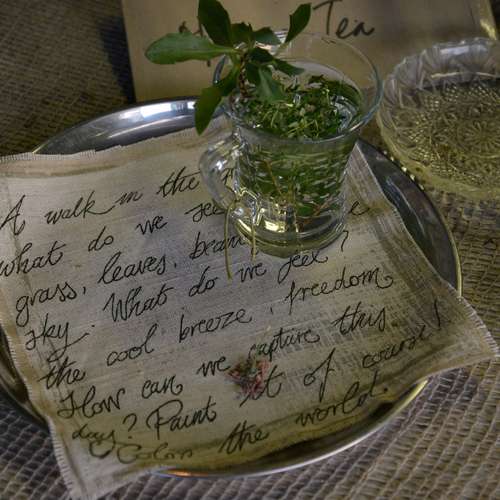 Tea
A walk in the
what do we see
grass, leaves,
sky. What do we feel?
the cool breeze, freedom
How can we capture this
day? Paint it of course!
Color the world.